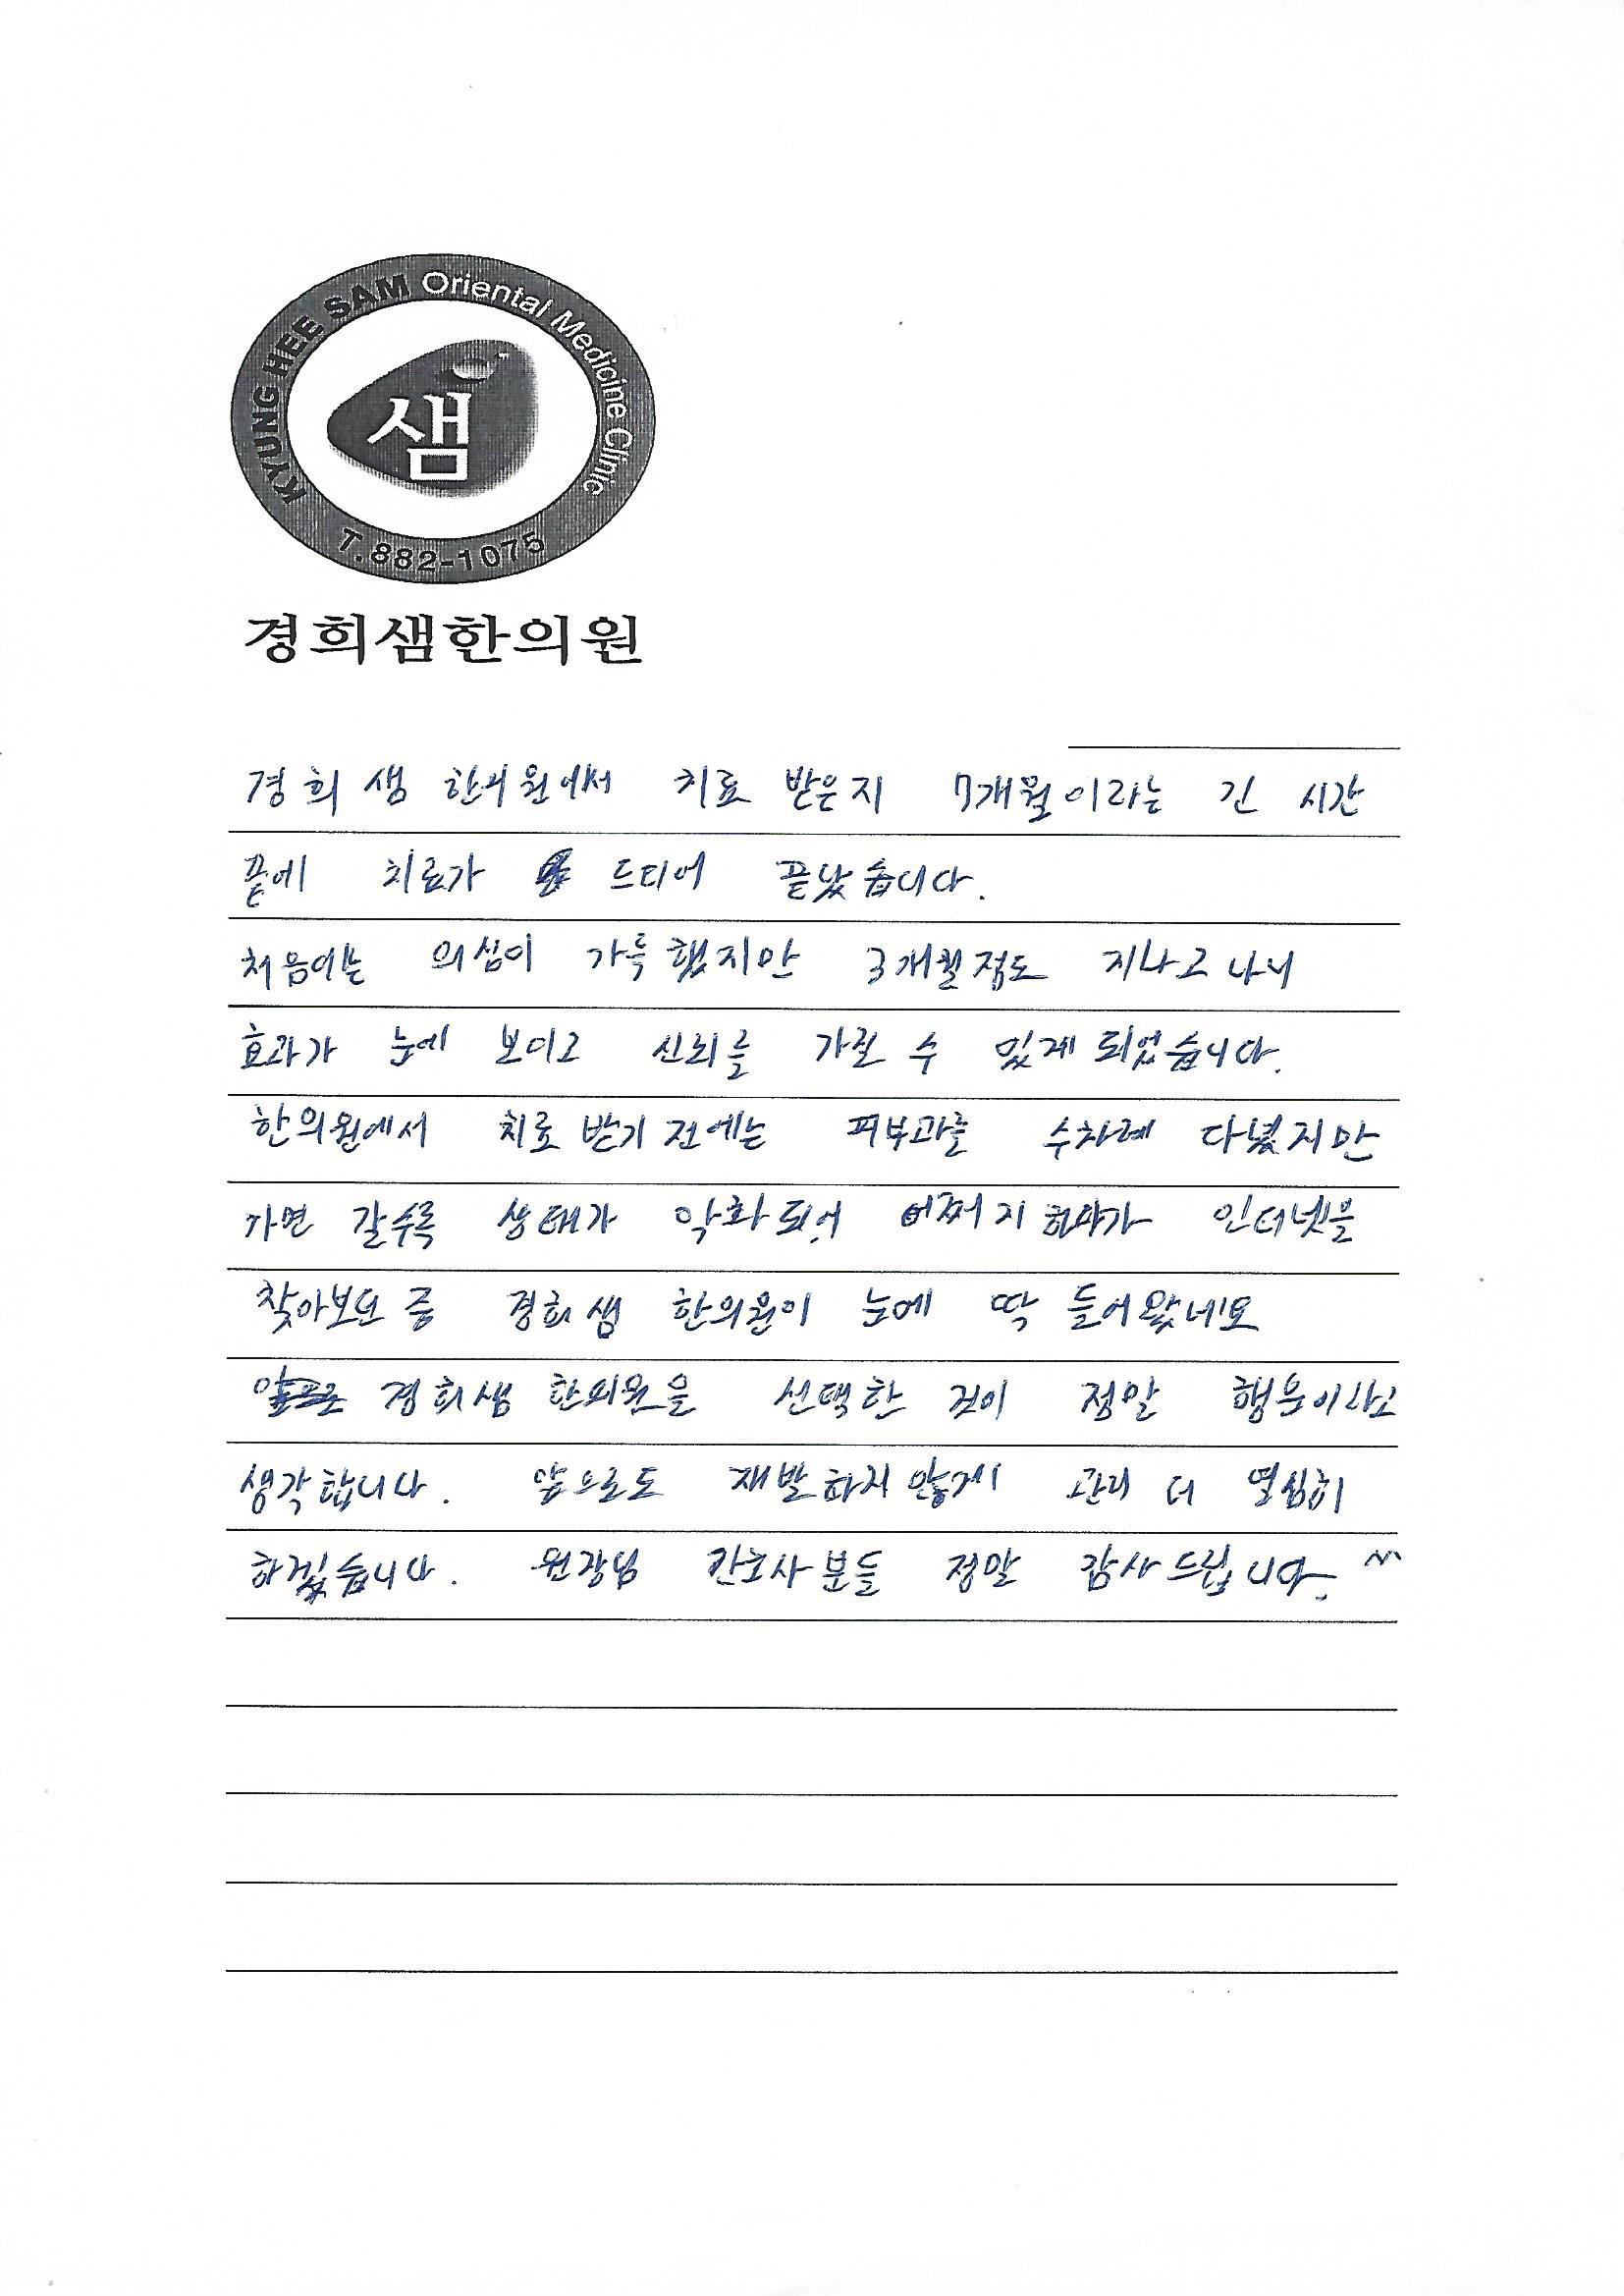 KYUNG HEE SAM Oriental Medicine Clinic
샘
T.882-1075
경희샘한의원
경희 샘 한의원에서 치료 받은지 7개월이라는 긴 시간
끝에 치료가 드디어 끝났습니다.
처음에는 의심이 가득했지만 3개월정도 지나고 나니
효과가 눈에 보이고 신뢰를 가질 수 있게 되었습니다.
한의원에서 치료 받기 전에는 피부과를 수차례 다녔지만
가면 갈수록 상태가 악화되어 어쩌지 하다가 인터넷을
찾아보던 중 경희샘 한의원이 눈에 딱 들어왔네요
경희샘 한의원을 선택한 것이 정말 행운이라고
생각합니다. 앞으로도 재발하지 않게 관리 더 열심히
하겠습니다. 원장님 간호사분들 정말 감사드립니다. ^^